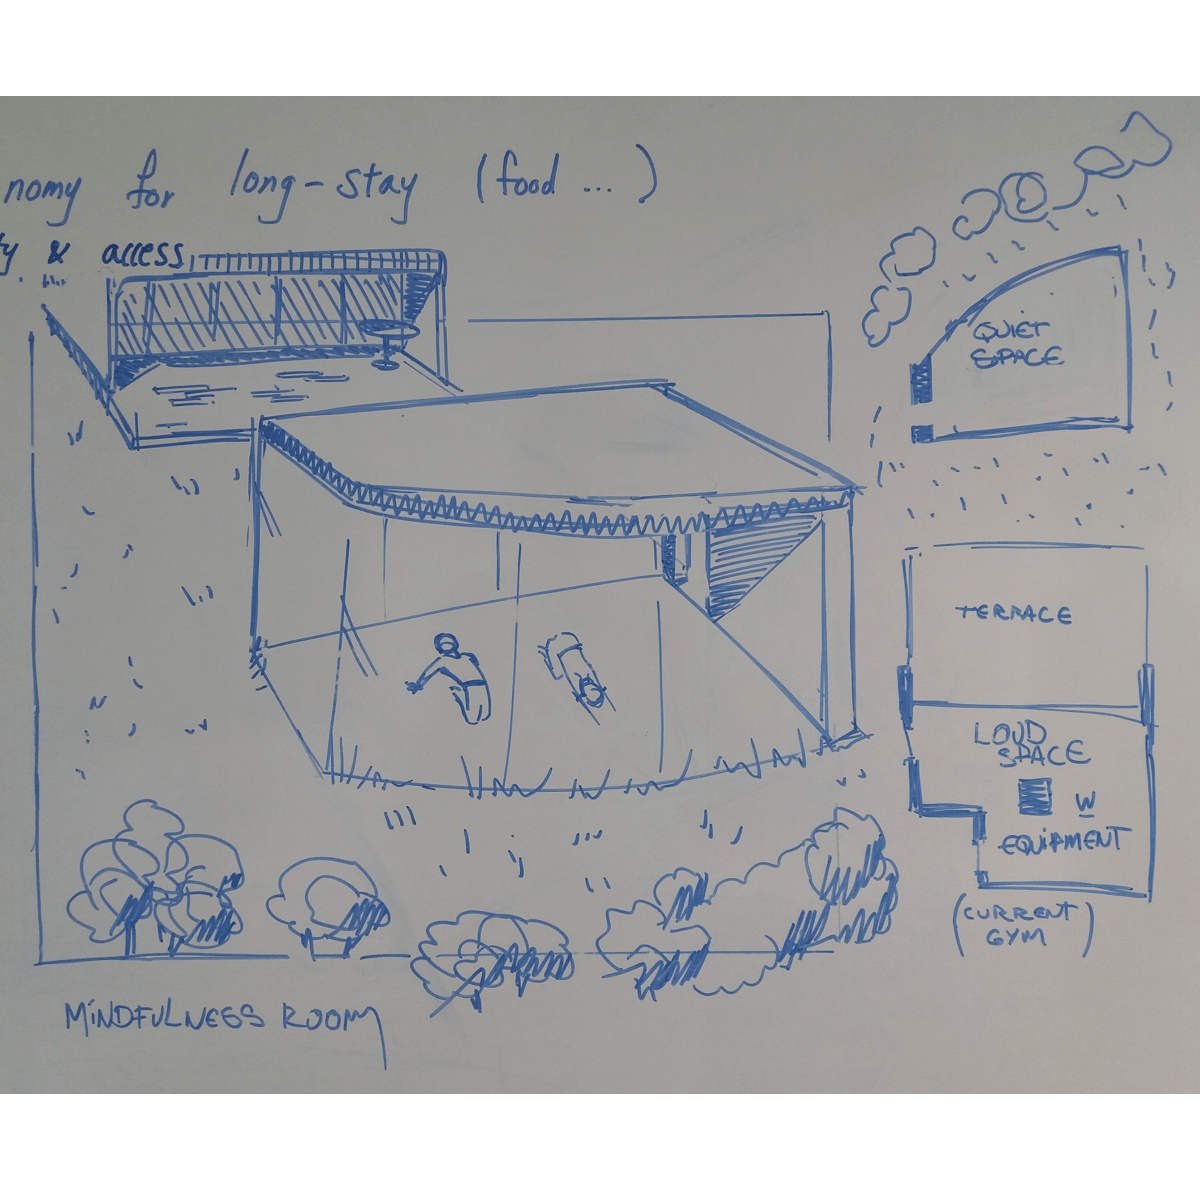 nomy for long-stay (food ...)
ty & access
QUIET
SPACE
TERRACE
LOUD
SPACE
W
EQUIPMENT
(CURRENT
GYM)
MINDFULNESS ROOM